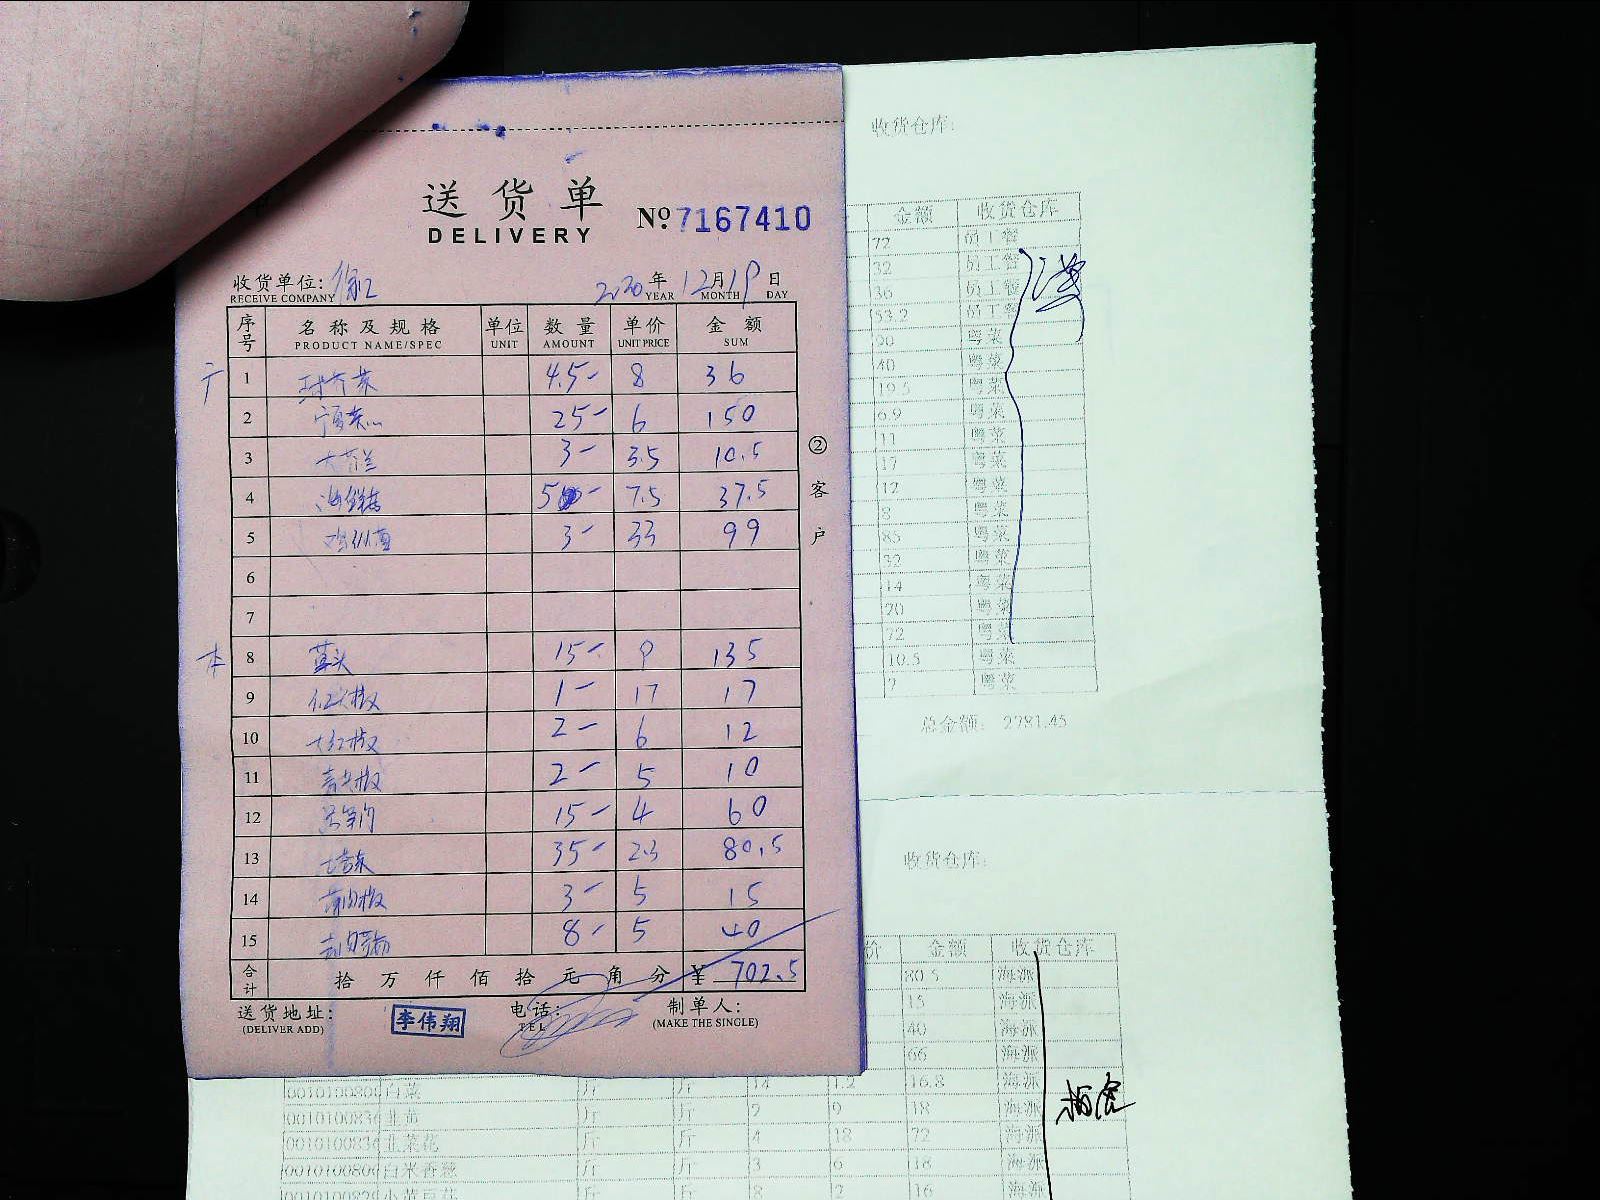 送货单
DELIVERY
№ 7167410
收货单位: 徐汇 2020年 12月 19日
RECEIVE COMPANY YEAR MONTH DAY
序号 名称及规格 单位 数量 单价 金额
PRODUCT NAME/SPEC UNIT AMOUNT UNIT PRICE SUM
广
1 4.5- 8 36
2 宁夏菜心 25- 6 150
3 大芥兰 3- 3.5 10.5
4 海鲜菇 5 - 7.5 37.5
5 鸡枞菌 3- 33 99
6
7
本
8 15- 9 135
9 红尖椒 1- 17 17
10 大红椒 2- 6 12
11 青尖椒 2- 5 10
12 15- 4 60
13 35- 2.3 80.5
14 3- 5 15
15 8- 5 40
合计 拾 万 仟 佰 拾 元 角 分 ¥ 702.5
送货地址: 电话: 制单人:
(DELIVER ADD) TEL (MAKE THE SINGLE)
李伟翔
②客户
收货仓库:
金额 收货仓库
72 员工餐
32 员工餐
36 员工餐
53.2 员工餐
90 粤菜
40 粤菜
19.5 粤菜
6.9 粤菜
11 粤菜
17 粤菜
12 粤菜
8 粤菜
85 粤菜
32 粤菜
14 粤菜
70 粤菜
72 粤菜
10.5 粤菜
7 粤菜
总金额: 2781.45
收货仓库:
价 金额 收货仓库
80.5 海派
15 海派
40 海派
66 海派
白菜 斤 斤 14 1.2 16.8 海派
斤 斤 2 9 18 海派
韭菜花 斤 斤 4 18 72 海派
白米香葱 斤 斤 3 6 18 海派
小黄豆芽 斤 斤 8 2 16 海派